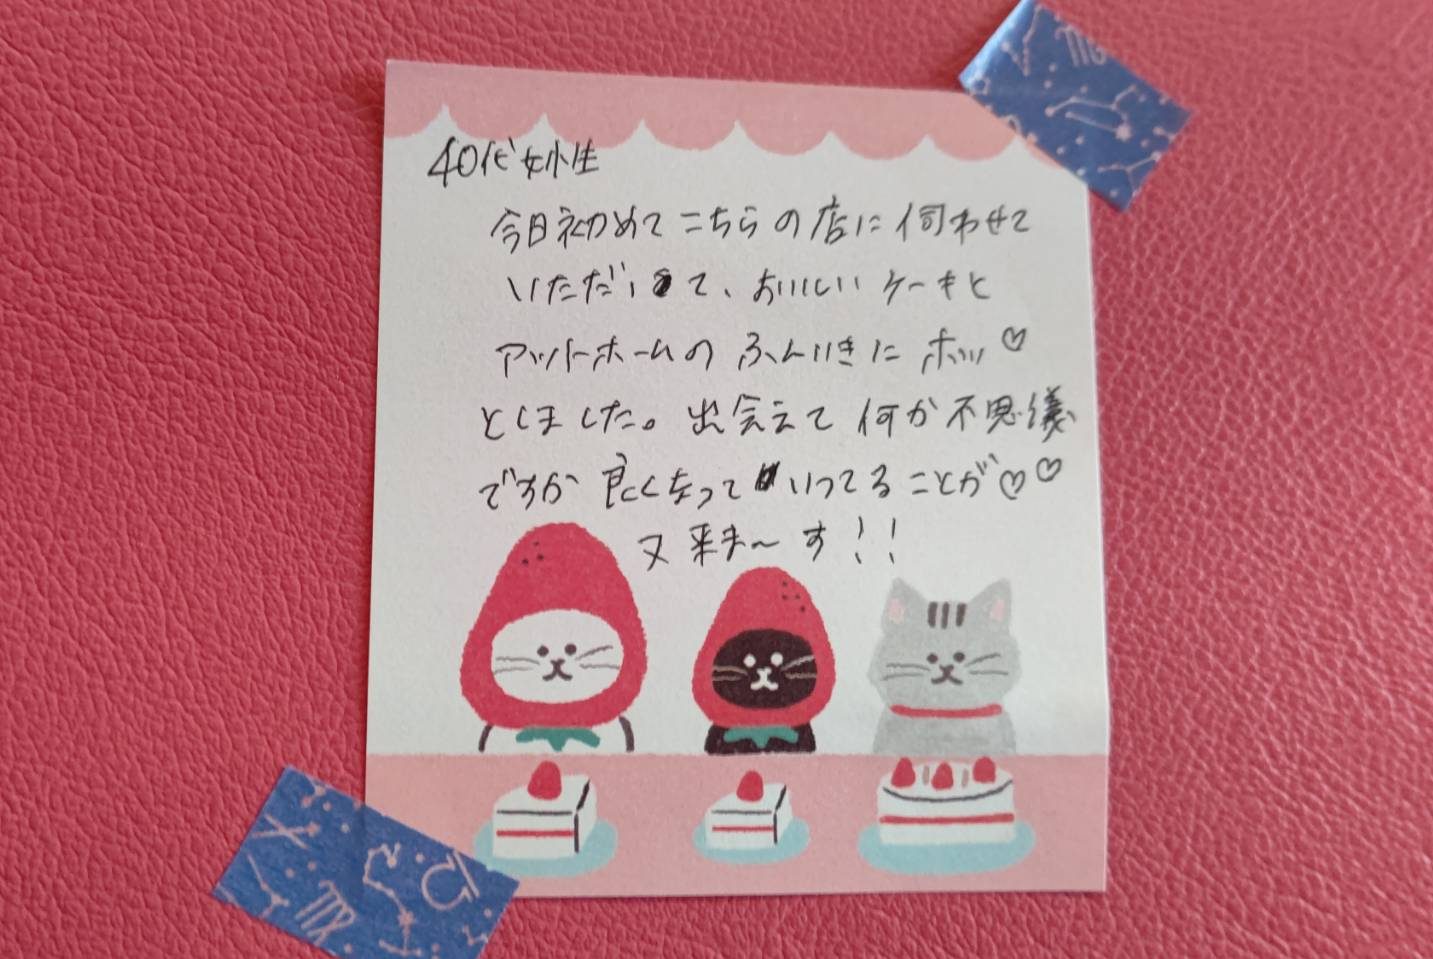 40代女性
今日初めてこちらの店に伺わせて
いただいて、おいしいケーキと
アットホームのふんいきにホッ♡
としました。出会えて何か不思議
ですが良くなっていってることが♡♡
又来ま〜す!!